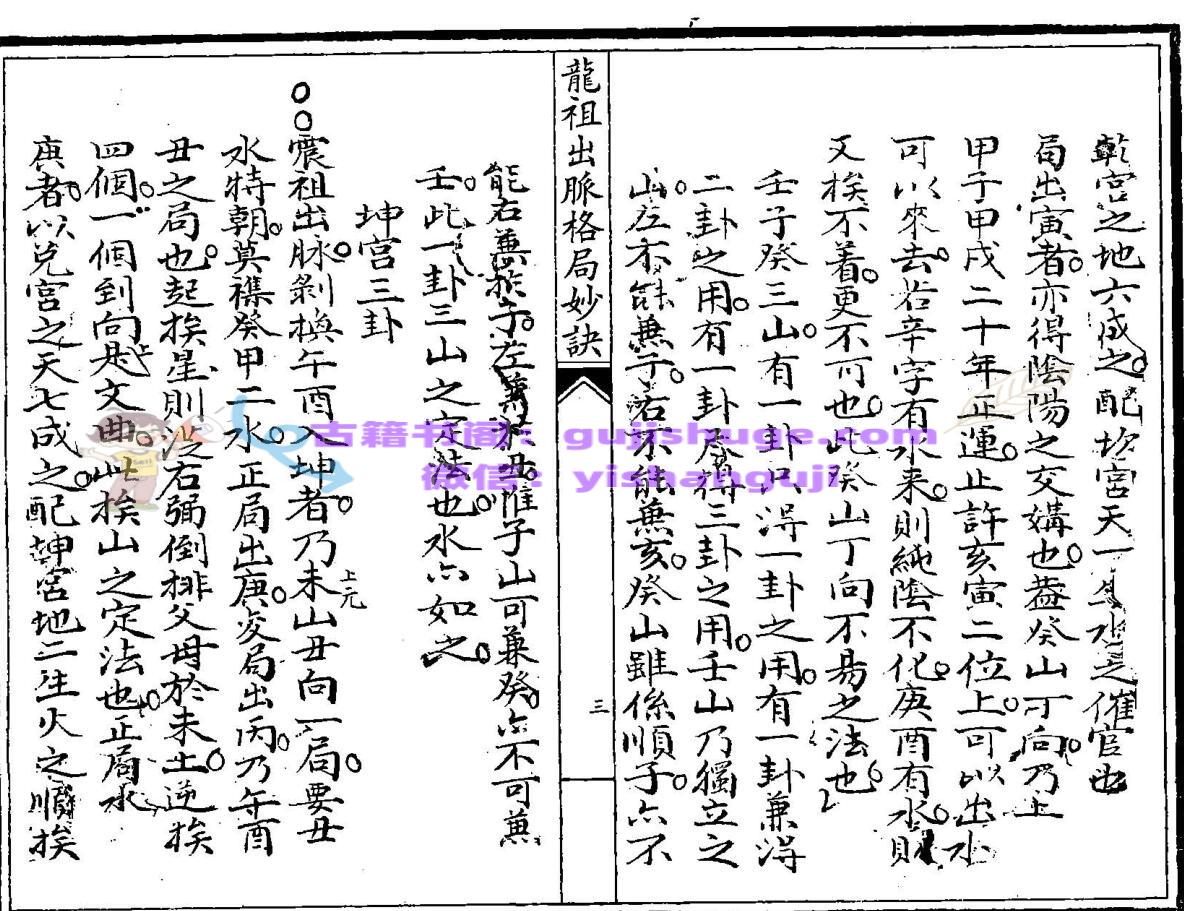 乾宮之地六成之配坎宮天一生水之催官也
局出寅者亦得陰陽之交媾也蓋癸山丁向乃上
甲子甲戌二十年正運止許亥寅二位上可以出水
可以來去若辛字有水来則純陰不化庚酉有水則
又挨不着更不可也此癸山丁向不易之法也
壬子癸三山有一卦只淂一卦之用有一卦兼淂
二卦之用有一卦尽得三卦之用壬山乃獨立之
山左不能兼子右不能兼亥癸山雖係順子亦不
龍祖出脈格局妙訣
三
能右兼於子左兼於丑惟子山可兼癸亦不可兼
壬此一卦三山之定法也水亦如之
坤宮三卦
震祖出脉剝換午酉入坤者乃未山丑向一局要丑
上元
水特朝莫襍癸甲二水正局出庚变局出丙乃午酉
丑之局也起挨星則从右弼倒排父母於未土逆挨
四個一個到向是文曲此挨山之定法也正局水
庚者以兌宮之天七成之配坤宮地二生火之順挨
古籍书阁：gujishuge.com
微信：yishanguji